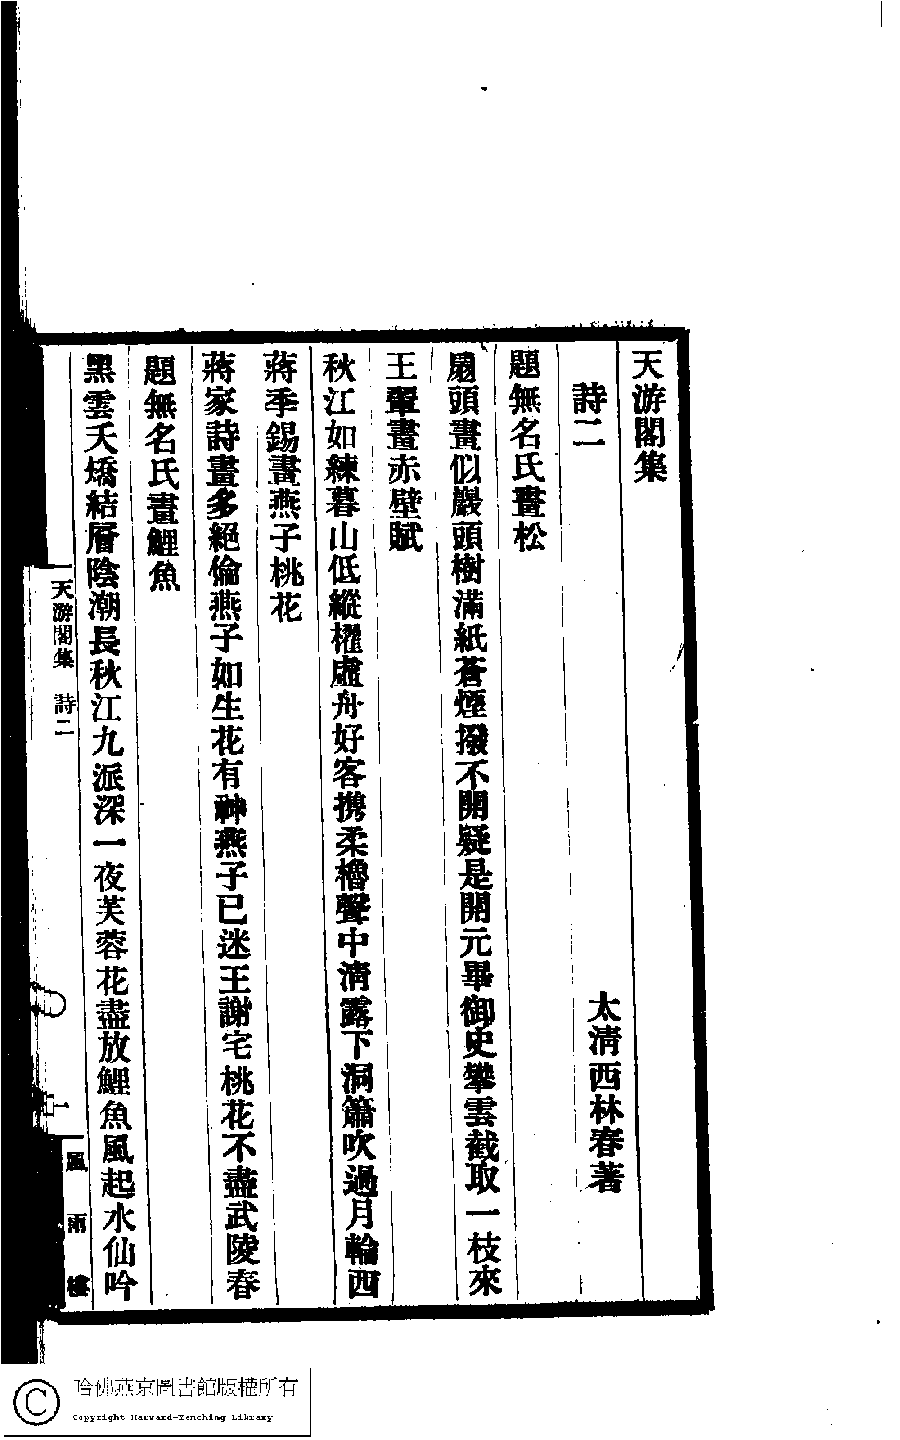 天游閣集
詩二
太清西林春著
題無名氏畫松
扇頭畫似巖頭樹滿紙蒼煙撥不開疑是開元畢御史攀雲截取一枝來
王翬畫赤壁賦
秋江如練暮山低縱櫂虛舟好客携柔櫓聲中清露下洞簫吹過月輪西
蔣季錫畫燕子桃花
蔣家詩畫多絕倫燕子如生花有神燕子已迷王謝宅桃花不盡武陵春
題無名氏畫鯉魚
黑雲夭矯結層陰潮長秋江九派深一夜芙蓉花盡放鯉魚風起水仙吟
天游閣集 詩二
一
風雨樓
哈佛燕京圖書館版權所有
Copyright Harvard-Yenching Library